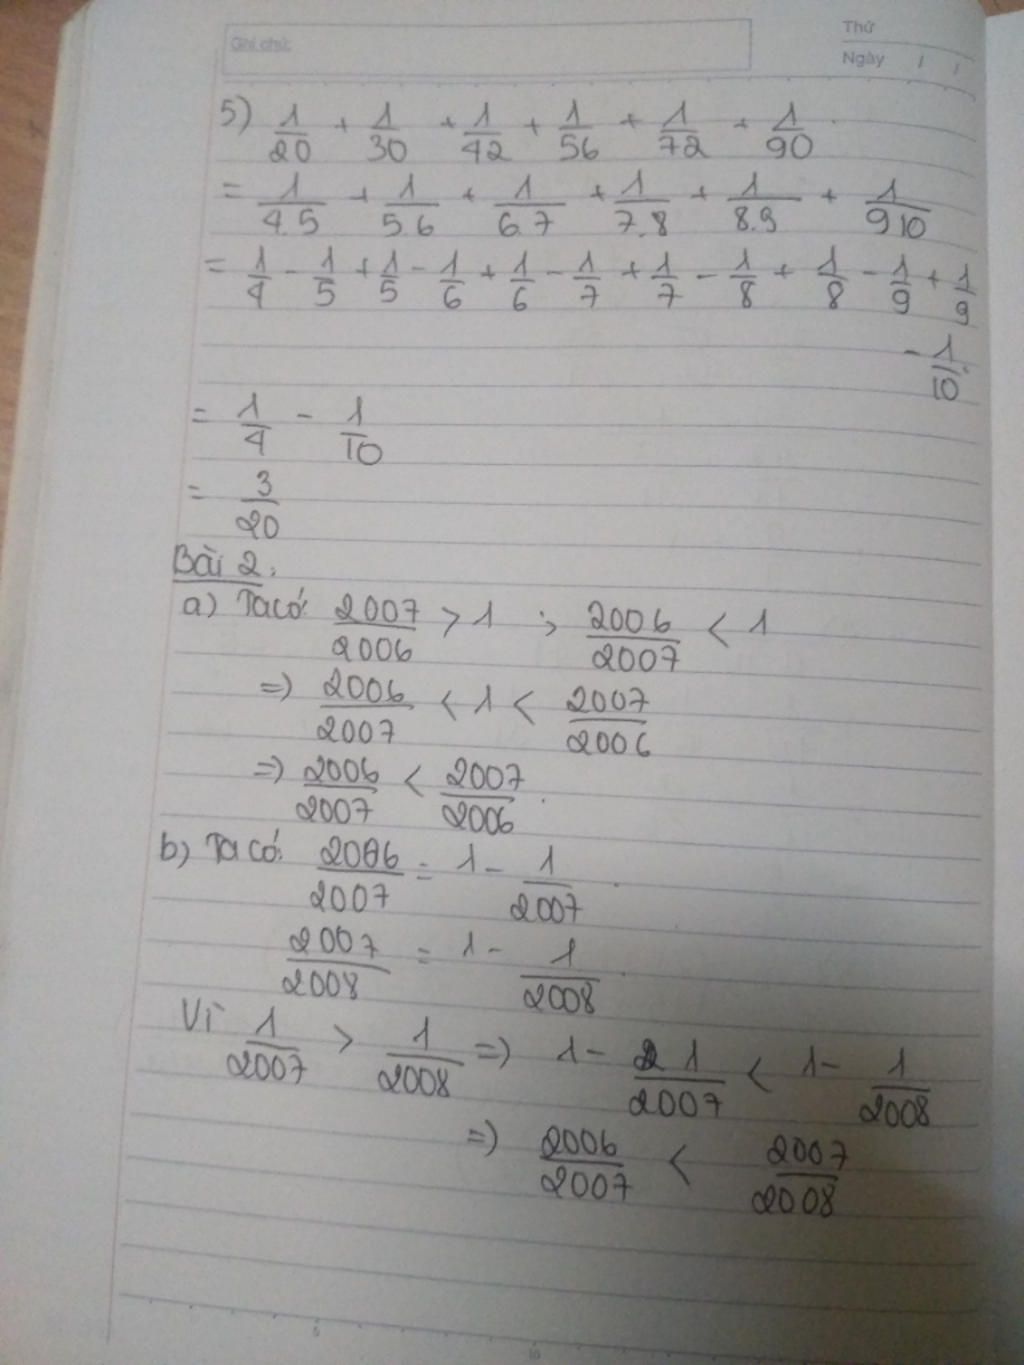 Ghi chú:
Thứ
Ngày / /
5) 1/20 + 1/30 + 1/42 + 1/56 + 1/72 + 1/90
= 1/4.5 + 1/5.6 + 1/6.7 + 1/7.8 + 1/8.9 + 1/9.10
= 1/4 - 1/5 + 1/5 - 1/6 + 1/6 - 1/7 + 1/7 - 1/8 + 1/8 - 1/9 + 1/9
- 1/10.
= 1/4 - 1/10
= 3/20
Bài 2:
a) Ta có: 2007/2006 > 1 ; 2006/2007 < 1
=) 2006/2007 < 1 < 2007/2006
=) 2006/2007 < 2007/2006.
b) Ta có: 2006/2007 = 1 - 1/2007.
2007/2008 = 1 - 1/2008.
Vì 1/2007 > 1/2008 =) 1 - 1/2007 < 1 - 1/2008
=) 2006/2007 < 2007/2008
5 10